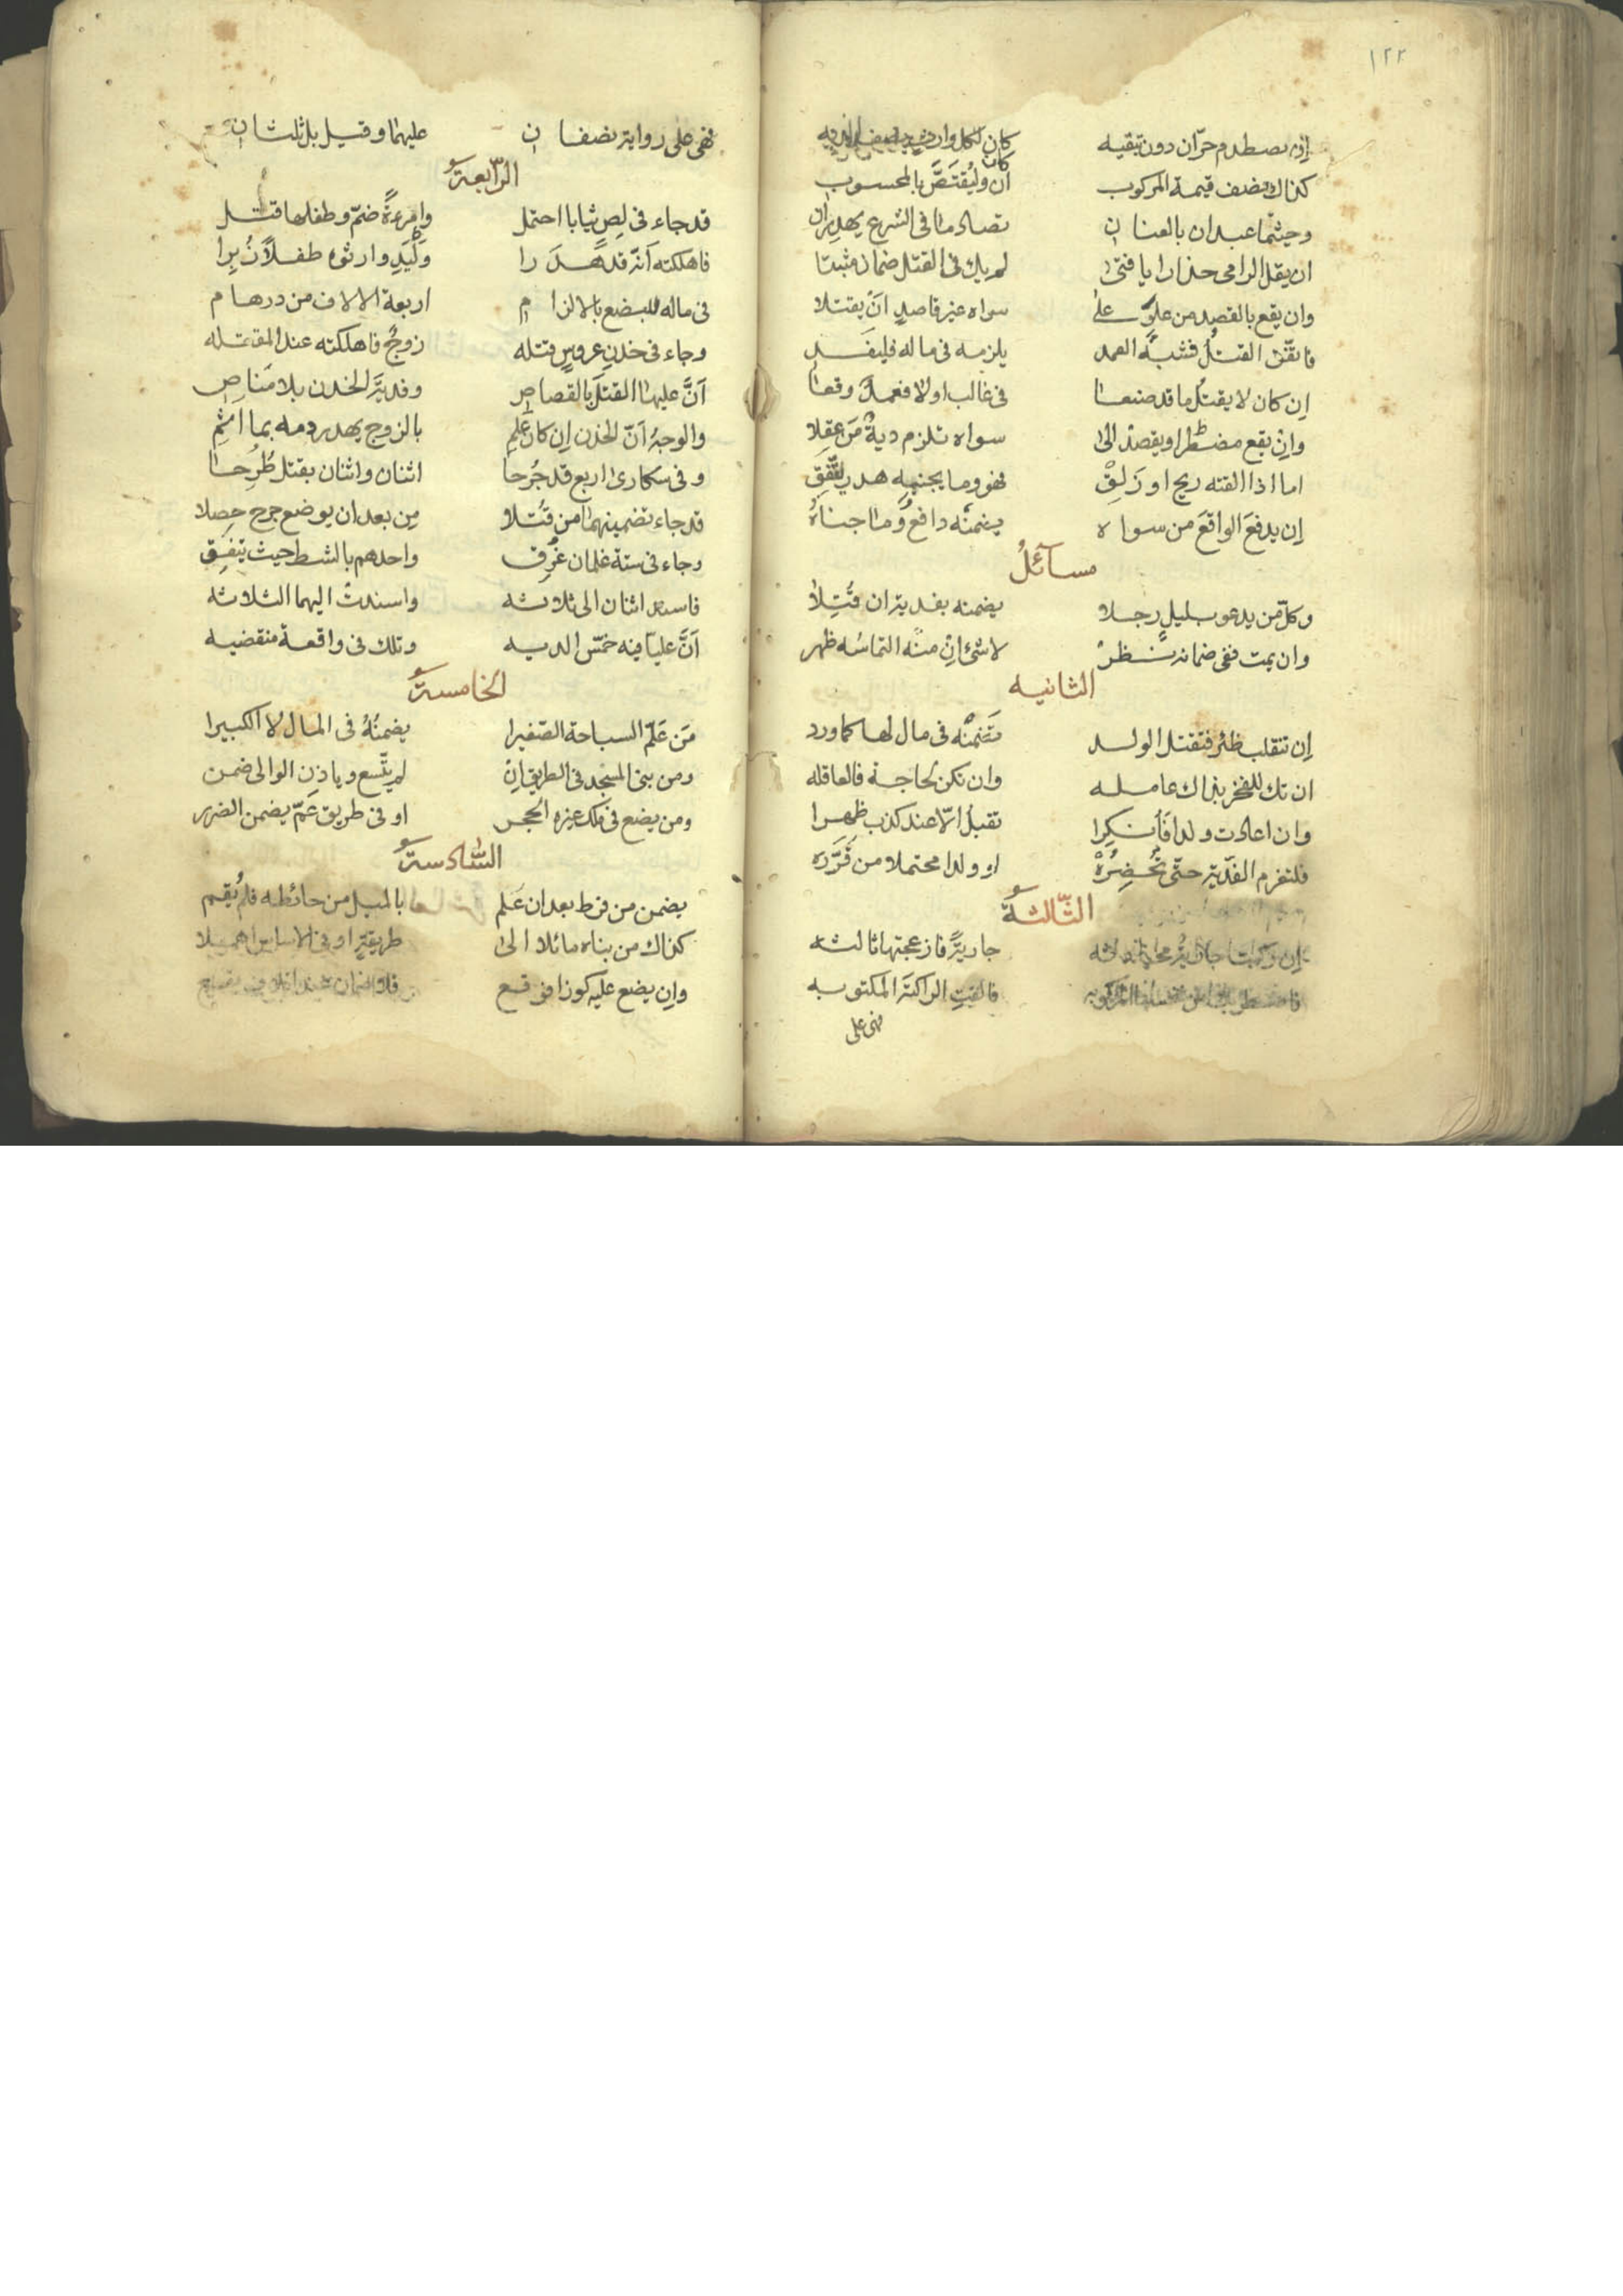 ١٢٢
إن يصطدم حرّان دون تبقيه كان لكل وارث نصف الديه
كذاك نصف قيمة المركوب كان وليُقتَصَّ بالمحسوب
وحيثما عبدان بالعنان تصادما في الشرع يهدران
ان يقل الرامي حذارا يا فتى لم يك في القتل ضمان مثبتا
وان يقع بالقصد من علوّ على سواه غير قاصدٍ انْ يقتلا
فاتفق القتلُ فشبهُ العمد يلزمه في ماله فليفد
إن كان لا يقتل ما قد صنعا في غالب اولا فعمدٌ وقعا
وإن يقع مضطرا او يقصدْ الى سواه تلزم ديةٌ مَن عقلا
اما اذا القته ريح او زَلِقْ فهو وما يجنيه هدر
إن يدفعَ الواقعَ من سواه يضمنْه دافعٌ وما جناهُ
مسائلُ
وكلّ من يدعو بليلٍ رجلا يضمنه بفدية ان قُتِلا
وان يمت ففي ضمانه نظرْ لا شئ انْ منه التماسُه ظهر
الثانيه
إن تنقلب ظئر فتقتل الولد تَضمنْه في مال لها كما ورد
ان تك للفخر بذاك عامله وان تكن لحاجة فالعاقله
وان اعادت ولدا فأُنكِرا تقبلُ الّا عند كذب ظهرا
فلتغرم الفدية حتّى تُحضِرُهْ او ولدا محتملا من
الثّالثةُ
إن ركبت جاريةٌ جاريةً فازعجتها ثالثه
فالقتِ الراكبَة المكتوبه
فهي على
فهي على رواية نصفان عليهما وقيل بل ثلثان
الرّابعةُ
قد جاء في لِص ثيابا احتمل وامرءةً ضمّ وطفلها قتل
فاهلكته أنّه قد هدرا وَلْيَدِ وارثوه طفلاً بِرا
في ماله للبضع بالالزام اربعة الالاف من درهام
وجاء في خدن عروسٍ قتله زوجٌ فاهلكته عند المقتله
أنّ عليها القتلَ بالقصاص وفديةَ الخدن بلا مَناصِ
والوجهُ أنّ الخدن إن كان عَلِم بالزوج يهدر دمه بما اثِم
وفي سكارى اربع قد جُرحا اثنان واثنان بقتل طُرِحا
قد جاء تضمينهما من قُتلا مِن بعد ان يوضع جرح حصلا
وجاء في ستة غلمان غَرِق واحدهم بالشط حيث يتفق
فاسند اثنان الى ثلاثه واسندتْ اليهما الثلاثه
أنّ عليا فيه خمّس الديه وتلك في واقعة منقضيه
الخامسةُ
مَن عَلّم السباحة الصّغيرا يضمنُهُ في المال لا الكبيرا
ومن بنى المسجد في الطريق إن لم يتّسع وباذن الوالى ضمن
ومن يضع في ملك غيره الحجر او في طريق عَمّ يضمن الضرر
السّادسةُ
يضمن من فرط بعد ان عَلم بالميل من حائطه فلم يُقِم
كذاك من بناه مائلا الى طريقةٍ او في الاساس اهملا
وإن يضع عليه كوزا فوقع فلا ضمان